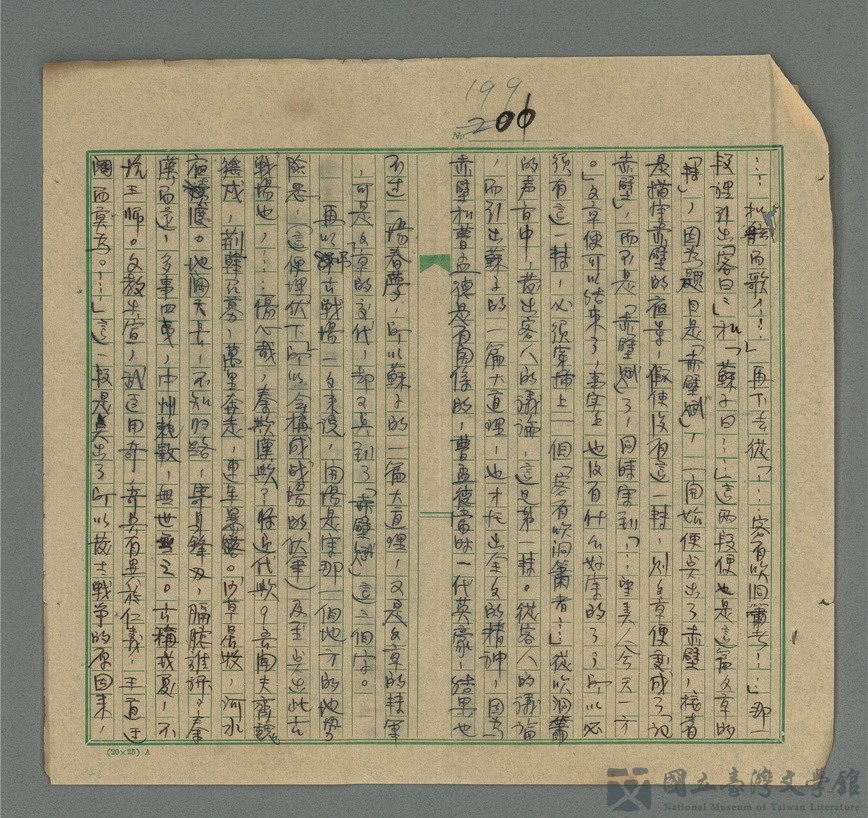 199
No. 200
……扣舷而歌……」再下去從「……客有吹洞簫者……」那一
段裡引出「客曰」和「蘇子曰……」這兩段便也是這篇文章的
「轉」,因為題目是「赤壁賦」,一開始便點出了赤壁,接着
是描寫赤壁的夜景,假使沒有這一轉,則文章便變成了「記
赤壁」,而不是「赤壁賦」了,同時寫到「……望美人兮天一方
。」文章便可以結束了,事實上也沒有什么好寫的了,所以必
須有這一轉,必須穿插上一個「客有吹洞簫者……」從吹洞簫
的声音中,黃出客人的議論,這是第一轉。從客人的議論
,而引出蘇子的一篇大道理,也才托出全文的精神,因為
赤壁和曹孟德是有關係的,曹孟德當時一代英豪,結果也
不过一場春夢,所以蘇子的一篇大道理,又是文章的轉筆
,可是文章的交代,却又点到了「赤壁賦」這三個字。
再以 古戰場一文來說,開場是寫那一個地方的地勢
險惡,(這便埋伏下所以会構成战場的伏筆)及至点出此古
戰場也,……傷心哉,秦欤漢欤?將近代欤?吾聞夫齊魏
徭戍,荆韓召募,萬里奔走,連年暴露。沙草晨牧,河水
夜渡。地闊天長,不知归路,寄身鋒刃,腷臆誰訴?秦
漢而還,多事四夷,中州耗斁,無世無之。古稱戎夏,不
抗王師。文教失宣,武臣用奇,奇兵有異於仁義,王道迂
闊而莫為。……」這一段是点出了所以 戰爭的原因來,
(20×25) A
國立臺灣文學館
National Museum of Taiwan Literature